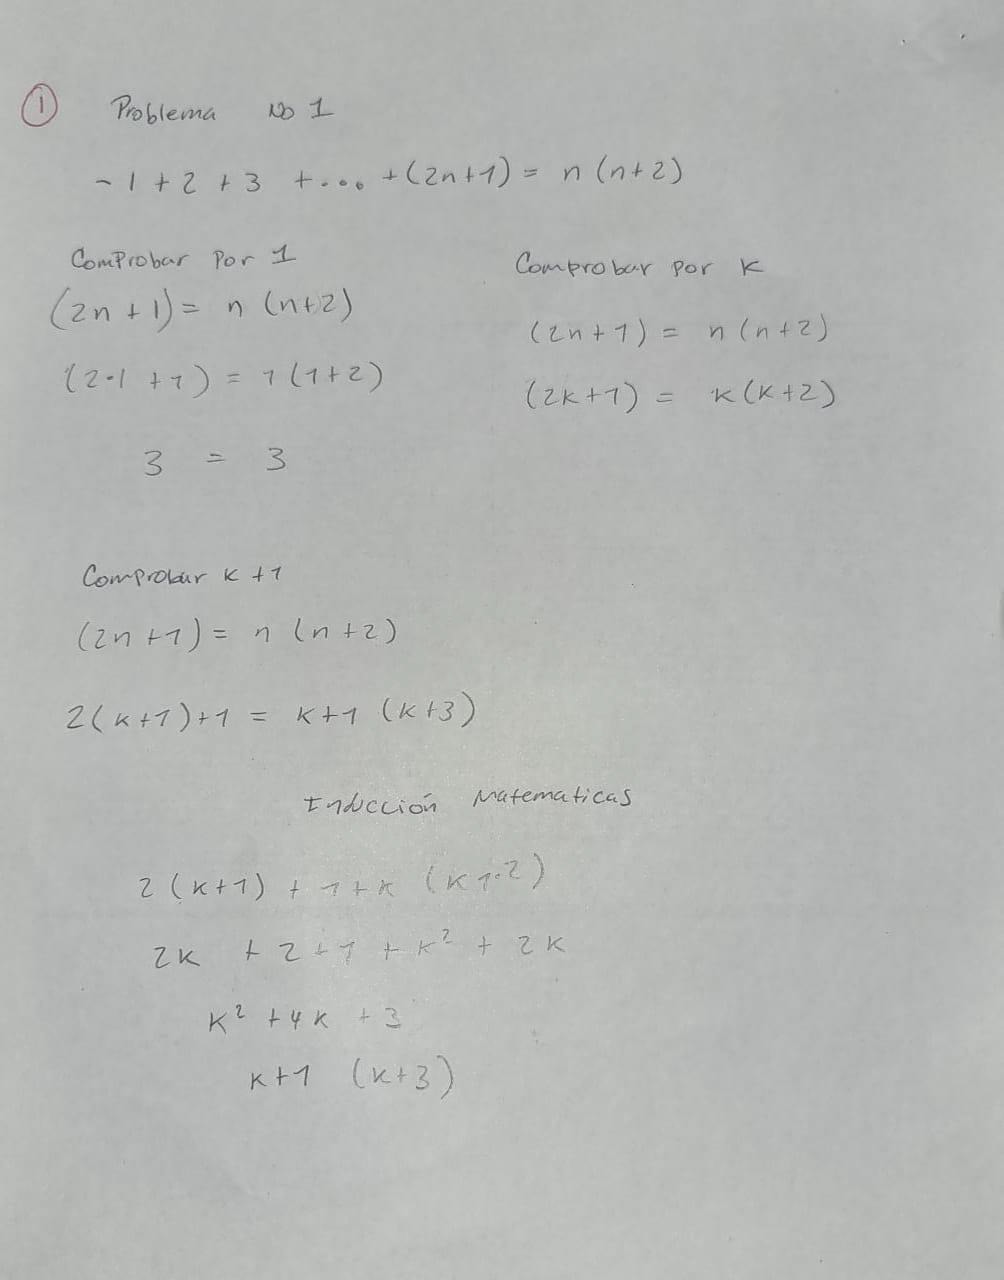 1 Problema No 1
- 1 + 2 + 3 +... +(2n+1) = n (n+2)
Comprobar Por 1
(2n + 1) = n (n+2)
(2·1 +1) = 1 (1+2)
3 = 3
Comprobar por K
(2n+1) = n (n+2)
(2k+1) = k(k+2)
Comprobar k +1
(2n +1) = n (n +2)
2(k+1)+1 = k+1 (k+3)
Inducción Matematicas
2 (k+1) + 1 + k (k+2)
2k + 2 + 1 + k² + 2k
k² + 4k + 3
k+1 (k+3)